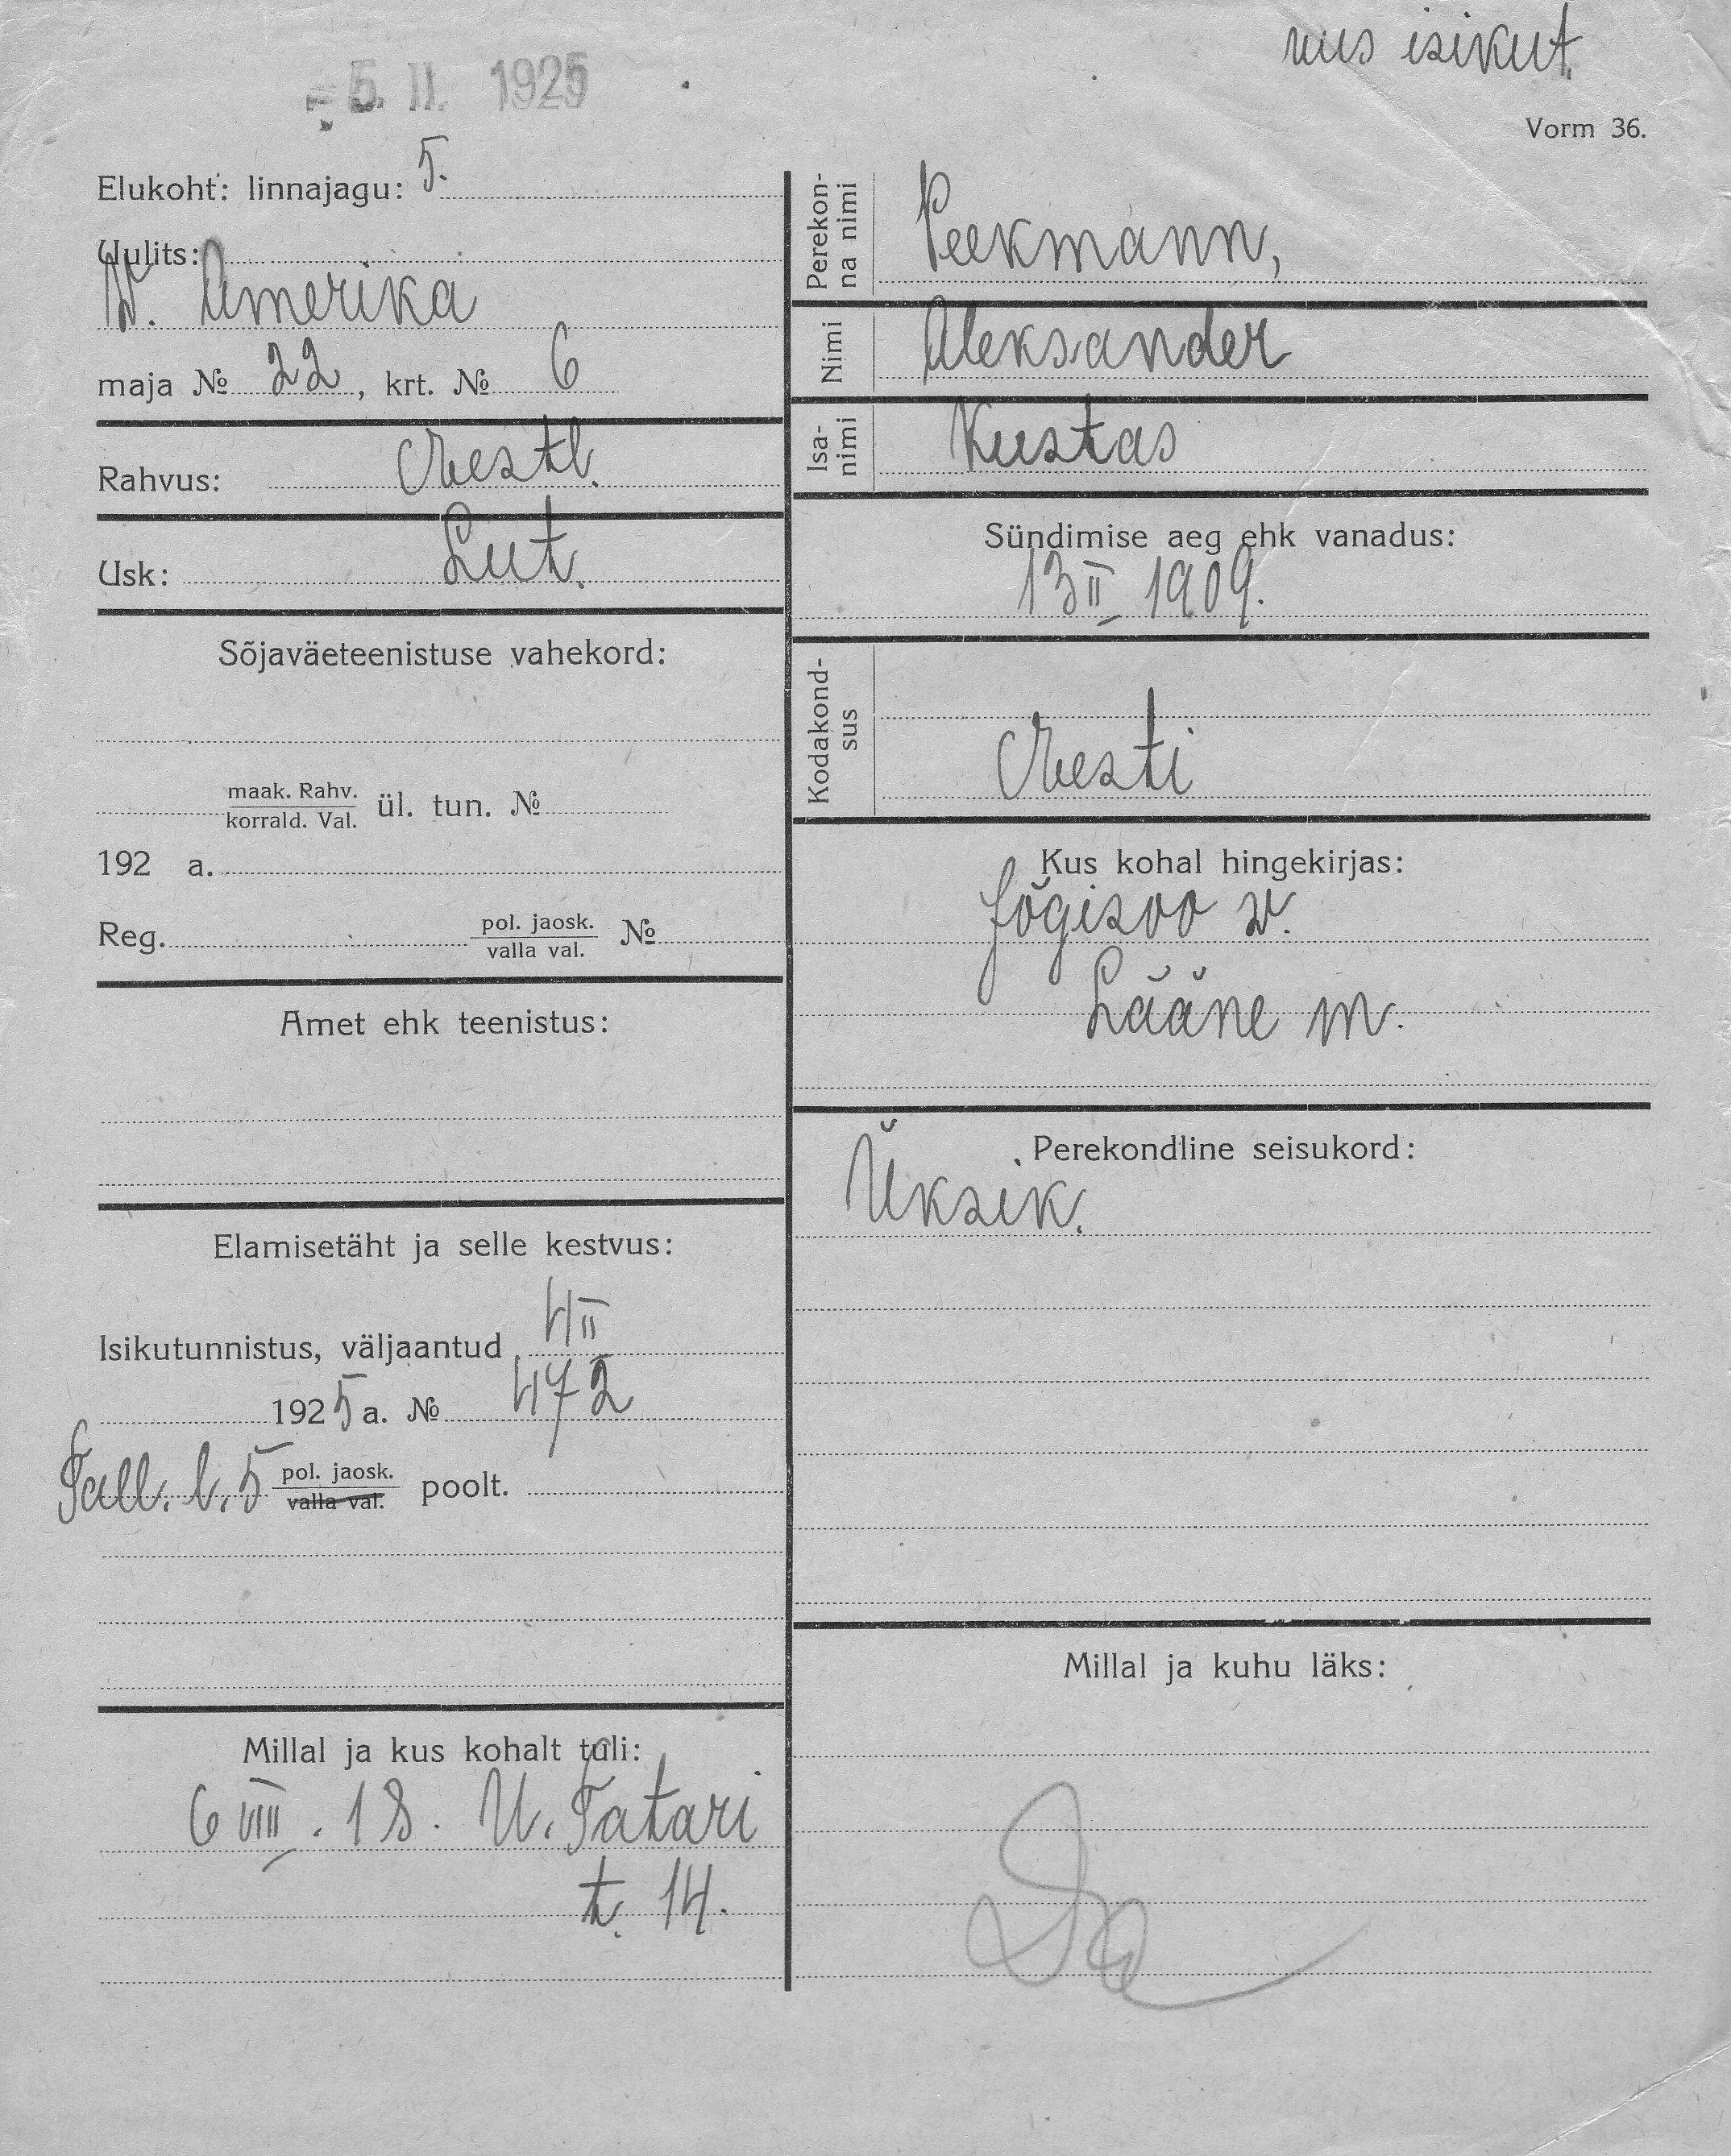 uus isikut.
- 5. II. 1925
Vorm 36.
Elukoht: linnajagu: 5.
Uulits:
W. Amerika
maja № 22, krt. № 6
Rahvus: Eestl.
Usk: Lut.
Sõjaväeteenistuse vahekord:
maak. Rahv.
korrald. Val.
ül. tun. №
192 a.
Reg. pol. jaosk. №
valla val.
Amet ehk teenistus:
Elamisetäht ja selle kestvus:
Isikutunnistus, väljaantud 4 II
1925 a. № 472
Tall. l. 5 pol. jaosk. poolt.
valla val.
Millal ja kus kohalt tuli:
6 VIII. 18. U. Tatari
t. 14.
Perekonna nimi Peekmann,
Nimi Aleksander
Isanimi Kustas
Sündimise aeg ehk vanadus:
13 II 1909.
Kodakondsus
Eesti
Kus kohal hingekirjas:
Jõgisoo w.
Lääne m.
Perekondline seisukord:
Üksik.
Millal ja kuhu läks: